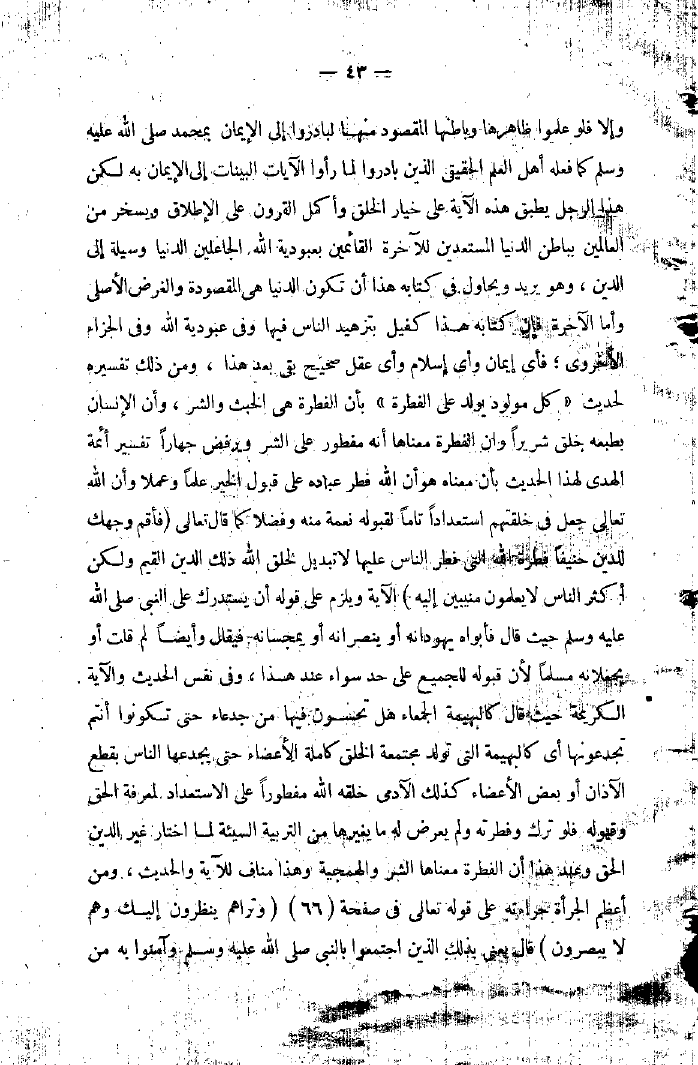 — ٤٣ —
وإلا فلو علموا ظاهرها وباطنها المقصود منهما لبادروا إلى الإيمان بمحمد صلى الله عليه
وسلم كما فعله أهل العلم الحقيقى الذين بادروا لما رأوا الآيات البينات إلى الإيمان به لكن
هذا الرجل يطبق هذه الآية على خيار الخلق وأكمل القرون على الإطلاق ويسخر من
العالمين بباطن الدنيا المستعدين للآخرة القائمين بعبودية الله. الجاعلين الدنيا وسيلة إلى
الدين ، وهو يريد ويحاول فى كتابه هذا أن تكون الدنيا هى المقصودة والغرض الأصلى
وأما الآخرة فإن كتابه هذا كفيل بتزهيد الناس فيها وفى عبودية الله وفى الجزاء
الأخروى ؛ فأى إيمان وأى إسلام وأى عقل صحيح بقى بعد هذا ، ومن ذلك تفسيره
لحديث « كل مولود يولد على الفطرة » بأن الفطرة هى الخبث والشر ، وأن الإنسان
بطبعه خلق شريراً وان الفطرة معناها أنه مفطور على الشر ويرفض جهاراً تفسير أئمة
الهدى لهذا الحديث بأن معناه هو أن الله فطر عباده على قبول الخير علما وعملا وأن الله
تعالى جعل فى خلقتهم استعداداً تاماً لقبوله نعمة منه وفضلا كما قال تعالى (فأقم وجهك
للدين حنيفاً فطرة الله التى فطر الناس عليها لا تبديل لخلق الله ذلك الدين القيم ولكن
أكثر الناس لا يعلمون منيبين إليه ) الآية ويلزم على قوله أن يستدرك على النبى صلى الله
عليه وسلم حيث قال فأبواه يهودانه أو ينصرانه أو يمجسانه. فيقال وأيضاً لم قلت أو
يجعلانه مسلماً لأن قبوله للجميع على حد سواء عند هذا ، وفى نفس الحديث والآية
الكريمة حيث قال كالبهيمة الجمعاء هل تحسون فيها من جدعاء حتى تكونوا أنتم
تجدعونها أى كالبهيمة التى تولد مجتمعة الخلق كاملة الأعضاء حتى يجدعها الناس بقطع
الآذان أو بعض الأعضاء كذلك الآدمى خلقه الله مفطوراً على الاستعداد لمعرفة الحق
وقبوله فلو ترك وفطرته ولم يعرض له ما يغيرها من التربية السيئة لما اختار غير الدين
الحق وعند هذا أن الفطرة معناها الشر والهمجية وهذا مناف للآية والحديث ، ومن
أعظم الجرأة جراءته على قوله تعالى فى صفحة ( ٦٦ ) ( وتراهم ينظرون إليك وهم
لا يبصرون ) قال يعنى بذلك الذين اجتمعوا بالنبى صلى الله عليه وسلم وآمنوا به من